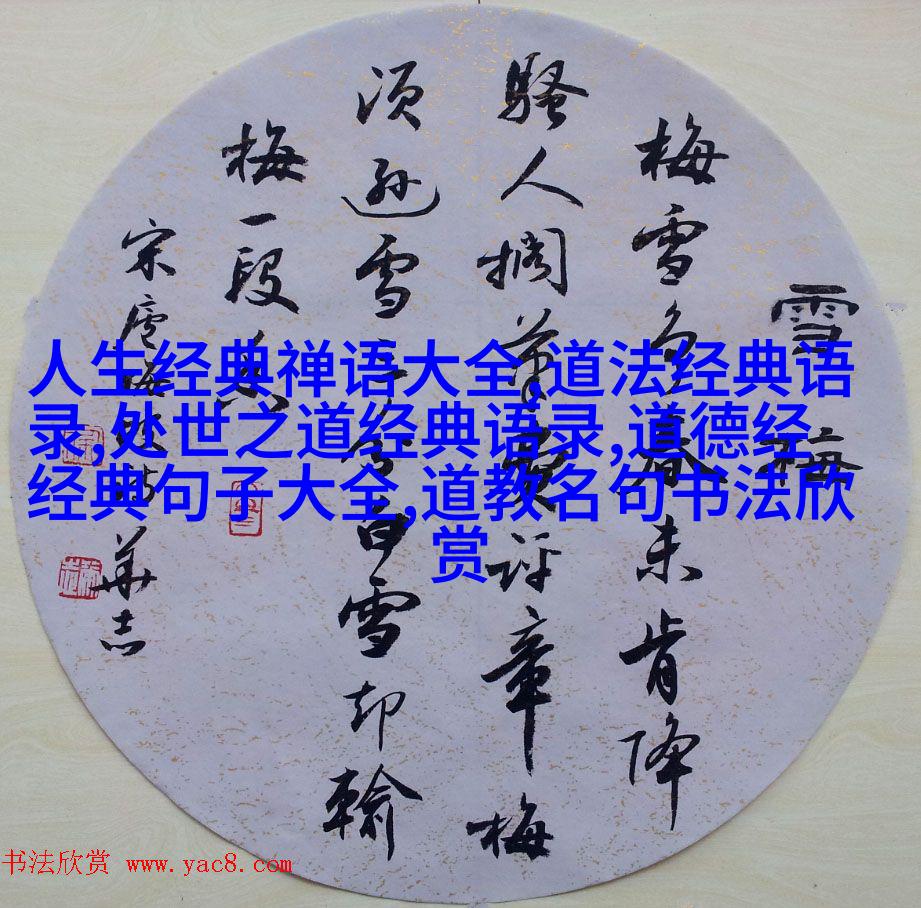 雪梅
梅雪争春未肯降
骚人搁笔费评章梅
须逊雪三分白雪却输
梅一段香
宋卢梅坡诗 華志
人生经典禅语大全,道法经典语
录,处世之道经典语录,道德经
经典句子大全,道教名句书法欣
赏
书法欣赏 www.yac8.com